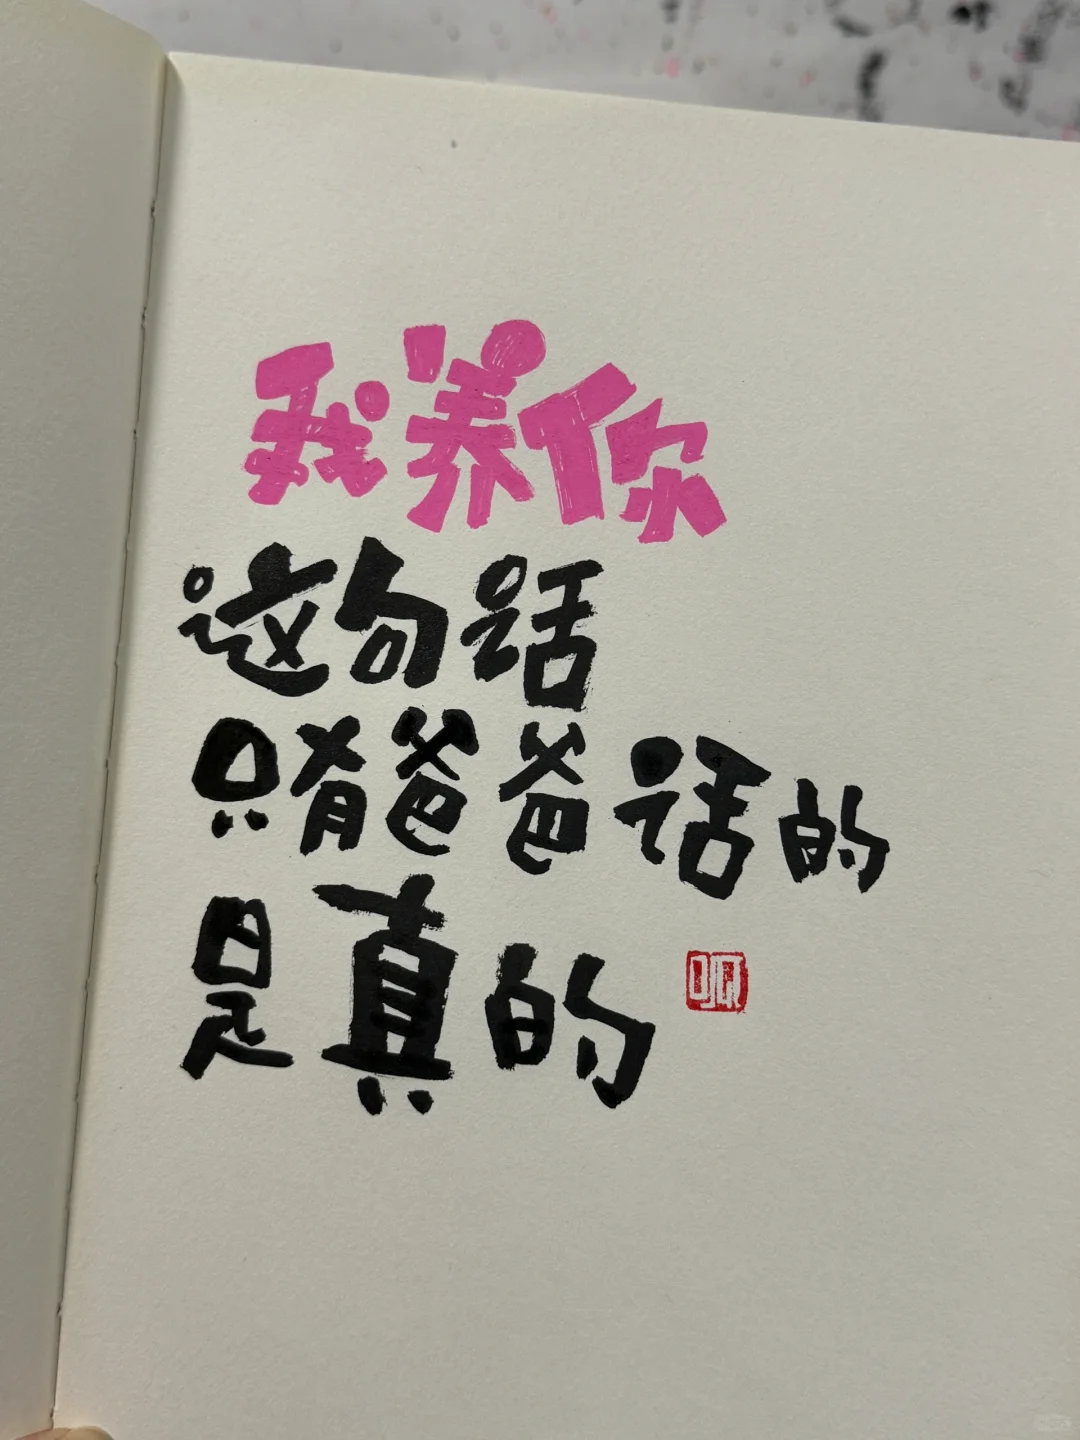 我养你
这句话
只有爸爸话的
是真的